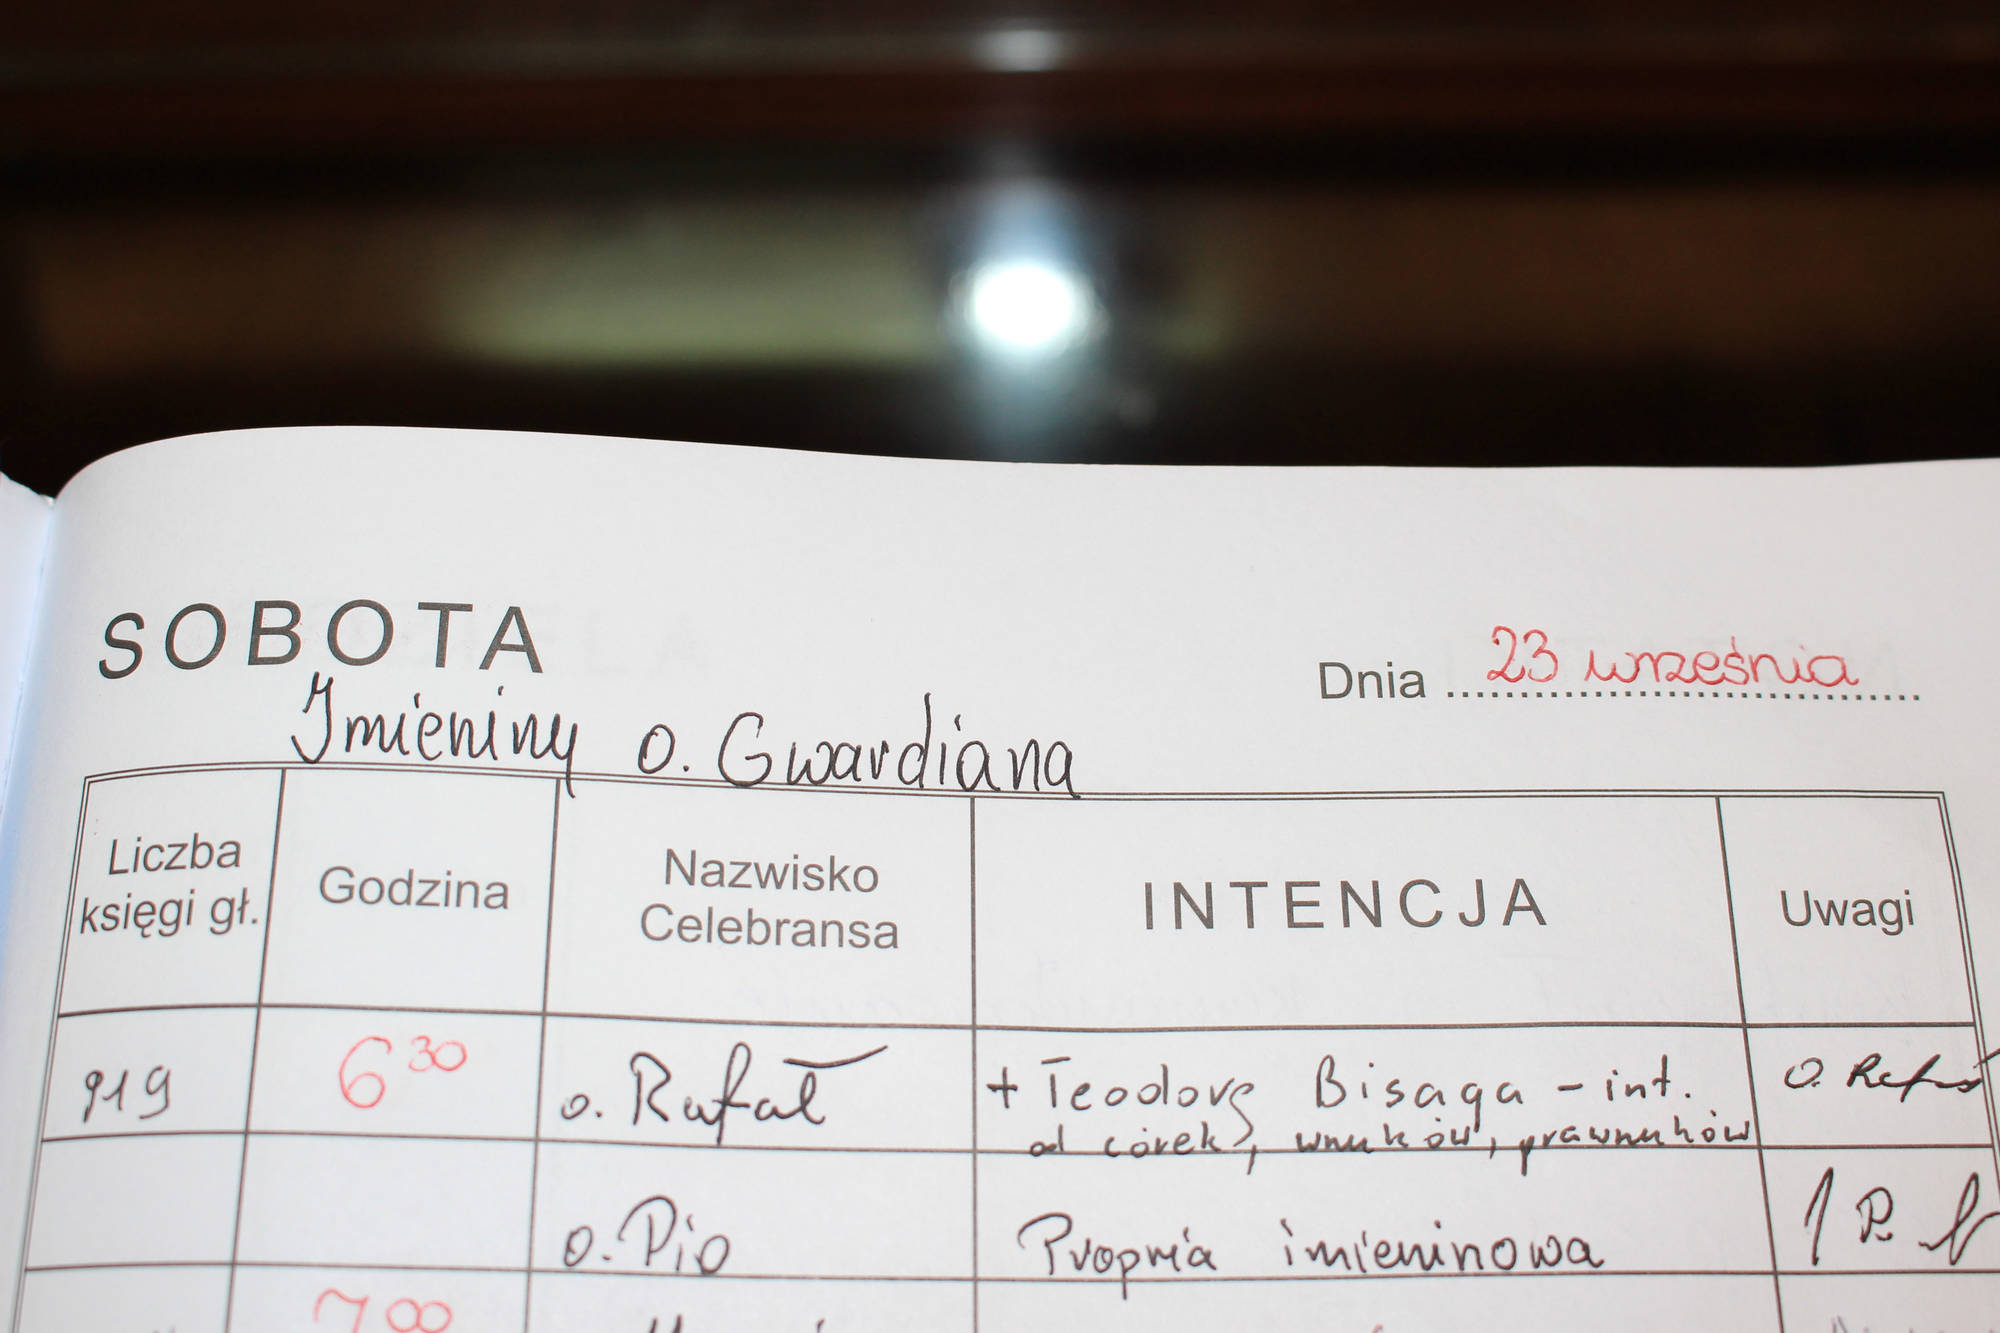 SOBOTA
Dnia 23 września
Imieniny o. Gwardiana
Liczba księgi gł.
Godzina
Nazwisko Celebransa
INTENCJA
Uwagi
919 6 30 o. Rafał + Teodora Bisaga - int. o. Rafał
od córek, wnuków, prawnuków
o. Pio Propria imieninowa
7 00